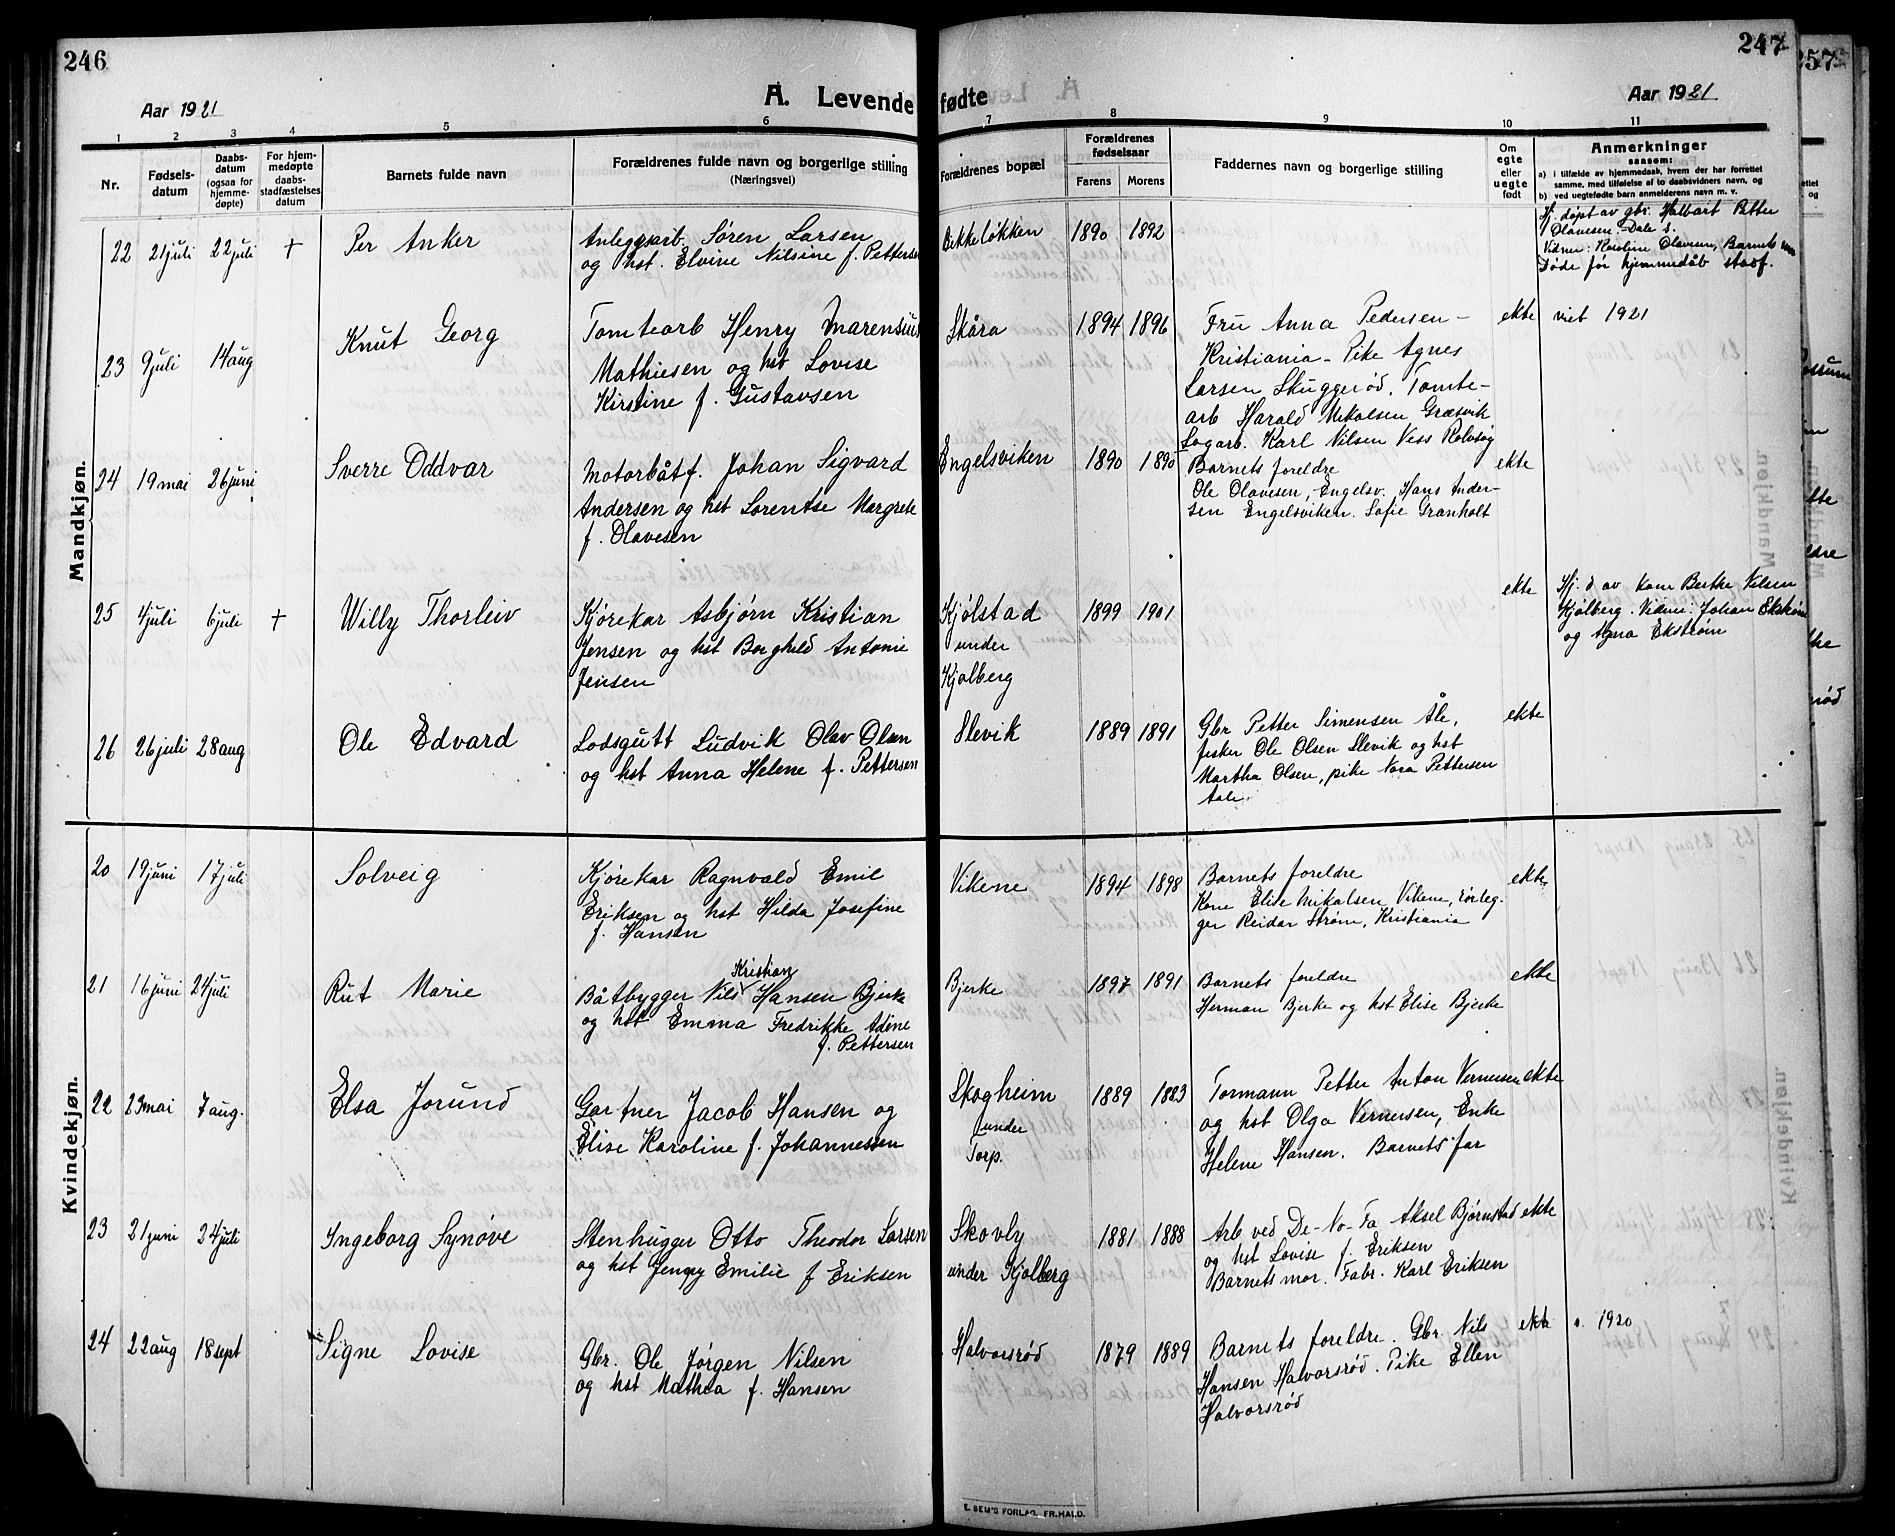 246
247
257
Aar 1921
A. Levende fødte
Aar 1921
1 2 3 4 5 6 7 8 9 10 11
Nr.
Fødsels-
datum
Daabs-
datum
(ogsaa for
hjemme-
døpte)
For hjem-
medøpte
daabs-
stadfæstelses
datum
Barnets fulde navn
Forældrenes fulde navn og borgerlige stilling
(Næringsvei)
Forældrenes bopæl
Forældrenes
fødselsaar
Farens Morens
Faddernes navn og borgerlige stilling
Om
egte
eller
uegte
født
Anmerkninger
saasom:
a) i tilfælde av hjemmedaab, hvem der har forrettet
samme, med tilføielse af to daabsvidners navn, og
b) ved uegtefødte barn anmelderens navn m. v.
Mandkjøn.
22 21 juli 22 juli + Per Anker
Anleggsarb. Søren Larsen
og hst. Elvine Nilsine f. Pettersen
Bikkeløkken 1890 1892
Hj. døpt av gbr. Halbart Petter
Olavesen - Dale s.
Vidner: Karoline Olavesen, Barnets
døde før hjemmedåb stasf.
23 9 juli 14 aug Knut Georg
Tomtearb Henry Marensius
Mathiesen og hst Lovise
Kirstine f. Gustavsen
Skåra 1894 1896
Fru Anna Pedersen -
Kristiania - Pike Agnes
Larsen Skuggerød. Tomte-
arb Harald Mikalsen Græsvik
Sagarb. Karl Nilsen Vess Rolvsøy
ekte viet 1921
24 19 mai 26 juni Sverre Oddvar
Motorbåtf. Johan Sigvard
Andersen og hst Lorentse Margrete
f. Olavesen
Engelsviken 1890 1890
Barnets foreldre
Ole Olavesen, Engelsv. Hans Ander-
sen Engelsviken. Sofie Granholt
ekte
25 4 juli 6 juli + Willy Thorleiv
Kjørekar Asbjørn Kristian
Jensen og hst Borghild Antonie
Jensen
Kjølstad
under
Kjølberg
1899 1901
ekte
Hj. d av kone Berthe Nilsen
Kjølberg. Vidner: Johan Ekstrøm
og Agna Ekstrøm
26 26 juli 28 aug Ole Edvard
Lodsgutt Ludvik Olav Olsen
og hst Anna Helene f. Pettersen
Slevik 1889 1891
Gbr Petter Simensen Åle,
fisker Ole Olsen Slevik og hst
Martha Olsen, pike Nora Pettersen
Aale
ekte
Kvindekjøn.
20 19 juni 17 juli Solveig
Kjørekar Ragnvald Emil
Eriksen og hst Hilda Josefine
f. Hansen
Vikene 1894 1898
Barnets foreldre
Kone Elise Mikalsen Vikene, rørleg-
ger Reidar Strøm, Kristiania
ekte
21 16 juni 24 juli Rut Marie
Kristian
Båtbygger Nils Hansen Bjerke
og hst Emma Fredrikke Adine
f. Pettersen
Bjerke 1897 1891
Barnets foreldre
Herman Bjerke og hst Elise Bjerke
ekte
22 23 mai 7 aug. Elsa Jorund
Gartner Jacob Hansen og
Elise Karoline f. Johannessen
Skogheim
under
Torp.
1889 1883
Formann Petter Anton Vernersen
og hst Olga Vernersen, Enke
Helene Hansen. Barnets far
ekte
23 21 juni 24 juli Ingeborg Synøve
Stenhugger Otto Theodor Larsen
og hst Jenny Emilie f Eriksen
Skovly
under Kjølberg
1881 1888
Arb ved De-No-Fa Aksel Bjørnstad
og hst Lovise f. Eriksen
Barnets mor. Fabr. Karl Eriksen
ekte
24 22 aug 18 sept Signe Lovise
Gbr. Ole Jørgen Nilsen
og hst Mathea f. Hansen
Halvorsrød 1879 1889
Barnets foreldre. Gbr. Nils
Hansen Halvorsrød. Pike Ellen
Halvorsrød
ekte 1920
E. SEM'S FORLAG, FR.HALD.